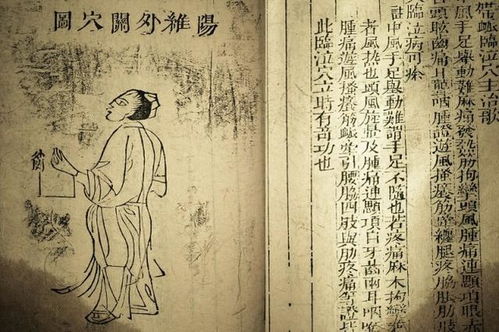 帶脈臨泣穴主治歌
中風手足舉動難麻痛發熱筋拘攣頭風腫痛連顋項赤
目頭眩齒痛耳聾咽腫證遊風搔癢筋牽纏腿疼脇脹肋肢
臨泣病可瘳
註中風手足舉動難謂手足不隨也若疼痛麻木拘攣
者風熱也頭風旋暈及腫痛連顋項目牙齒兩耳咽
腫痛遊風搔癢筋脈牽引腰脇四肢與肋疼痛等證
此臨泣穴立時有奇功也
陽維外關穴圖